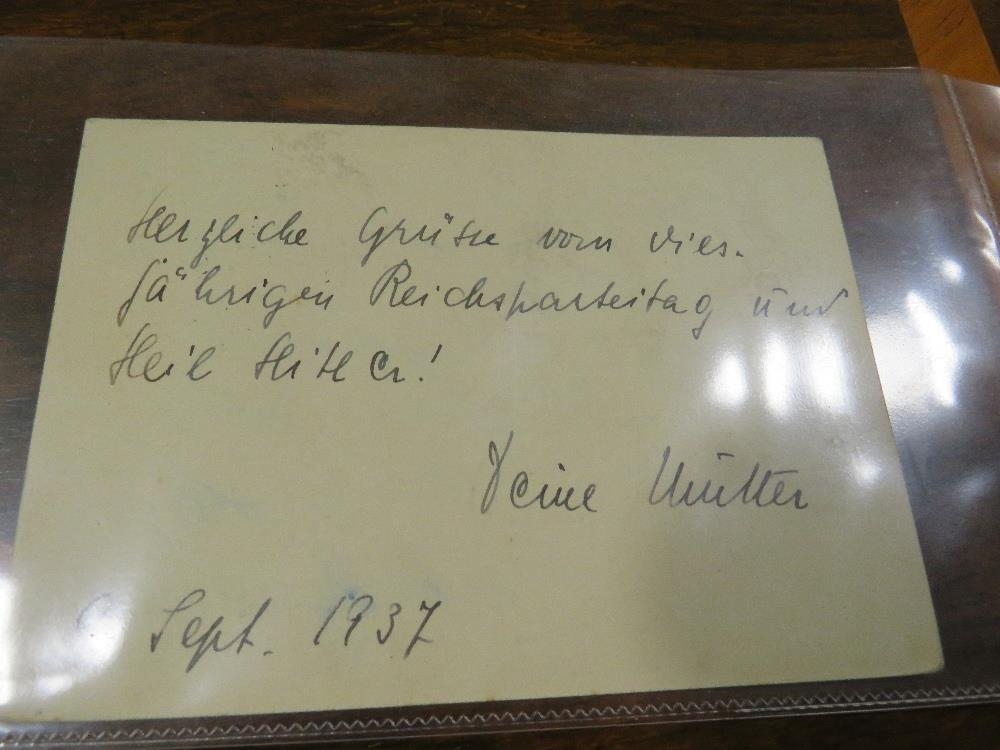 Herzliche Grüsse vom dies-
jährigen Reichsparteitag und
Heil Hitler!
Deine Mutter
Sept. 1937